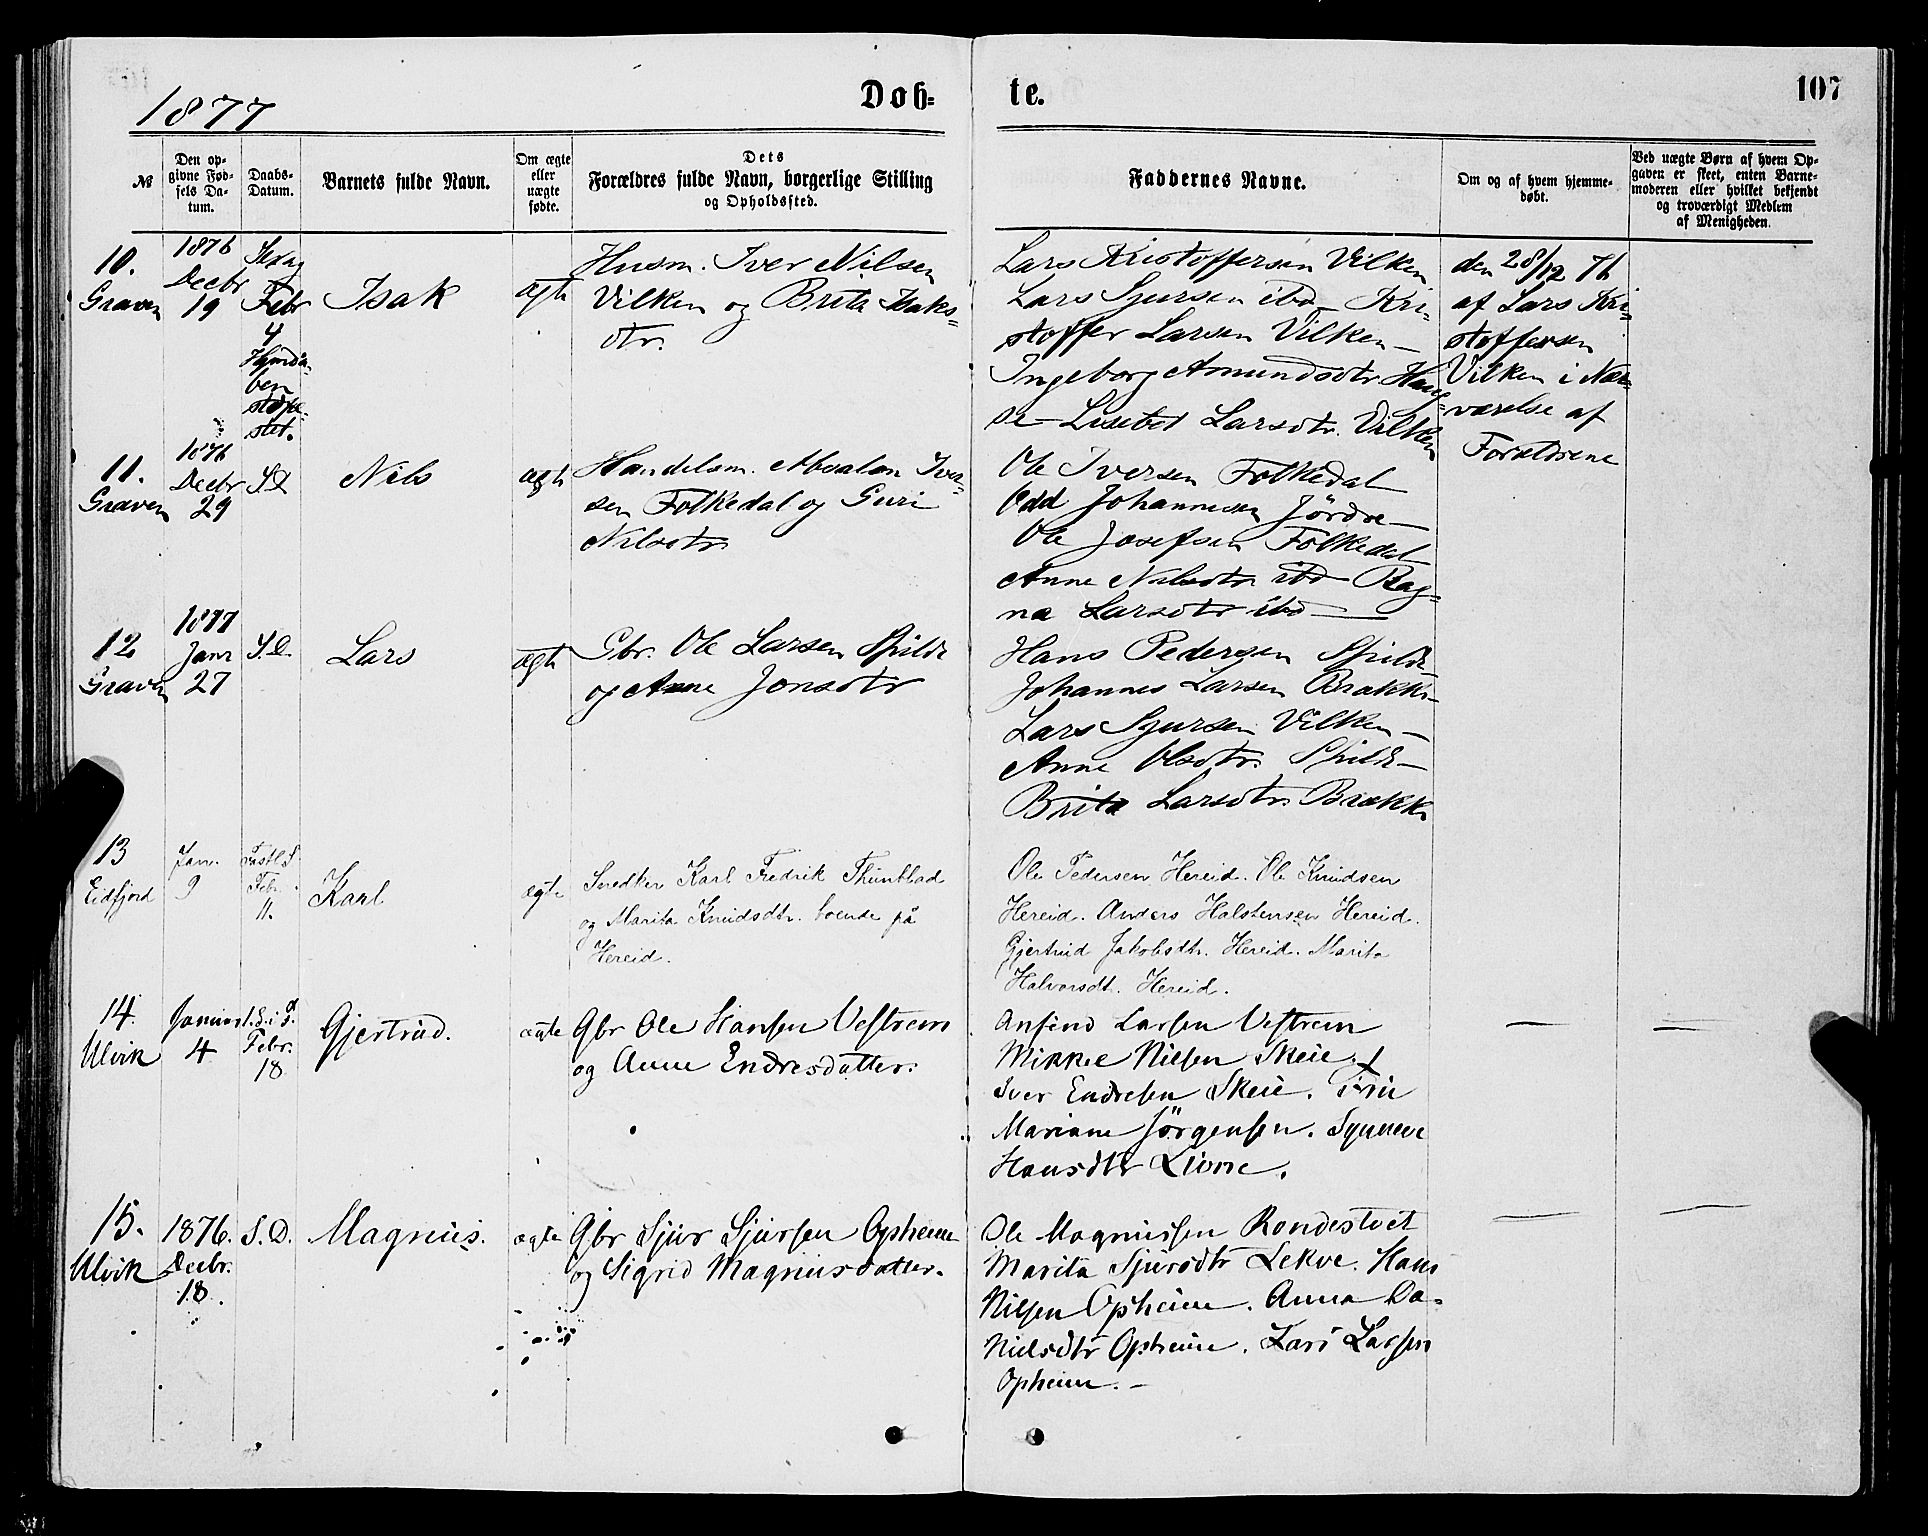 1877
Døb-
te.
107
№
Den op-
givne Fød-
sels Da-
tum.
Daabs-
Datum.
Barnets fulde Navn.
Om ægte
eller
uægte
fødte.
Dets
Forældres fulde Navn, borgerlige Stilling
og Opholdssted.
Faddernes Navne.
Om og af hvem hjemme-
døbt.
Ved uægte Børn af hvem Op-
gaven er skeet, enten Barne-
moderen eller hvilket bekjendt
og troværdigt Medlem
af Menigheden.
10.
Graven
1876
Decbr
19
Febr
4
Isak
ægte
Husm. Iver Nilsen
Vilken og Brita Isaks-
dtr.
Lars Kristoffersen Vilken
Lars Sjursen ibd Kri-
stoffer Larsen Vilken —
Ingeborg Amundsdtr Hau-
se — Lisebet Larsdtr. Vilken
den 28/12 76
af Lars Kri-
stoffersen
Vilken i Nær-
værelse af
Forældrene
11.
Graven
1876
Decbr
29
S. D
Nils
ægte
Handelsm. Absalon Iver-
sen Folkedal og Guri
Nilsdtr.
Ole Iversen Folkedal
Odd Johannesen Jørdre —
Ole Josefsen Folkedal
Anne Nilsdtr ibd — Rag-
na Larsdtr ibd —
12
Graven
1877
Janr
27
S. D.
Lars
ægte
Gbr. Ole Larsen Spilde
og Anne Jonsdtr
Hans Pedersen Spilde
Johannes Larsen Brække —
Lars Sjursen Vilken —
Anne Olsdtr. Spilde —
Brita Larsdtr. Brække
13
Eidfjord
Jan.
9
Fastl. S.
Febr.
11.
Karl
egte
Snedker Karl Fredrik Thunblad
og Marita Knudsdtr. boende på
Hereid.
Ole Pedersen Hereid. Ole Knudsen
Hereid. Anders Halstensen Hereid.
Gjertrud Jakobsdtr. Hereid. Marita
Halvorsdtr. Hereid.
14.
Ulvik
Januar
4
1. S. i F.
Febr.
18
Gjertrud.
ægte
Gbr Ole Hansen Vestrem
og Anne Endresdatter.
Anfind Larsen Vestrem
Mikkel Nielsen Skeie.
Iver Endresen Skeie. Frū
Mariane Jörgensen. Synneve
Hansdtr Lione.
—
—
15.
Ulvik
1876.
Decbr.
18.
S. D.
Magnus.
ægte
Gbr Sjur Sjursen Opheim
og Sigrid Magnusdatter.
Ole Magnussen Rondestvet
Marita Sjursdtr Lekve. Hans
Nilsen Opheim. Anna Da-
nielsdtr Opheim. Lars Larsen
Opheim. —
—
—